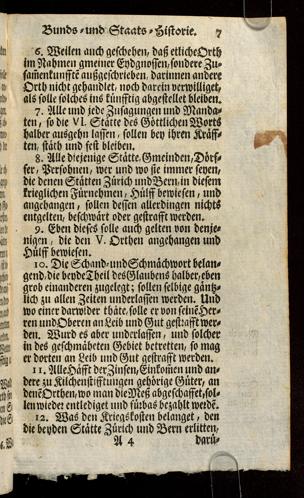 Bunds- und Staats-Historie. 7
6. Weilen auch geschehen, daß etliche Orth
im Nahmen gmeiner Eydgnossen, sondere Zu-
samenkunfftē außgeschrieben, darinnen andere
Orth nicht gehandlet, noch darein verwilliget,
als solle solches ins künfftig abgestellet bleiben.
7. Alle und jede Zusagungen und Manda-
ten, so die VI. Stätte des Göttlichen Worts
halber ausgehn lassen, sollen bey ihren Kräff-
ten, stäth und fest bleiben.
8. Alle diejenige Stätte, Gemeinden, Dörf-
fer, Persohnen, wer und wo sie immer seyen,
die denen Stätten Zürich und Bern, in diesem
krieglichen Fürnehmen, Hülff bewiesen, und
angehangen, sollen dessen allerdingen nichts
entgelten, beschwärt oder gestrafft werden.
9. Eben dieses solle auch gelten von denje-
nigen, die den V. Orthen angehangen und
Hülff bewiesen.
10. Die Schand- und Schmächwort belan-
gend, die beyde Theil des Glaubens halber, eben
grob einanderen zugelegt; sollen selbige gäntz-
lich zu allen Zeiten underlassen werden. Und
wo einer darwider thäte, solle er von seinē Her-
ren und Oberen an Leib und Gut gestrafft wer-
den. Wurd es aber underlassen, und solcher
in des geschmäheten Gebiet betretten, so mag
er dorten an Leib und Gut gestrafft werden.
11. Alle Häfft der Zinsen, Einkomen und an-
dere zu Kilchenstifftungen gehörige Güter, an
denē Orthen, wo man die Meß abgeschaffet, sol-
len wieder entlediget und fürbas bezahlt werdē.
12. Was den Kriegskosten belanget, den
die beyden Stätte Zürich und Bern erlitten,
A 4 darü-